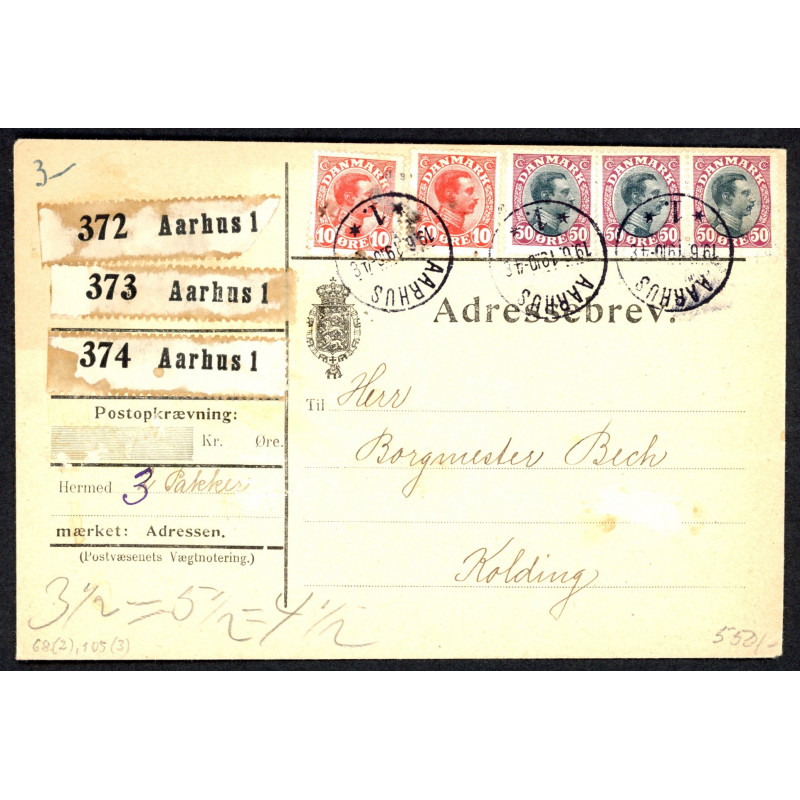 3-
372 Aarhus 1
373 Aarhus 1
374 Aarhus 1
DANMARK
10 ØRE 10
DANMARK
ØRE 10
DANMARK
50 ØRE 50
DANMARK
50 ØRE 50
DANMARK
50 ØRE 50
AARHUS
* 1. *
AARHUS
* 1. *
AARHUS
* 1. *
Adressebrev.
Postopkrævning:
Kr. Øre.
Hermed 3 Pakker
mærket: Adressen.
(Postvæsenets Vægtnotering.)
Til Herr
Borgmester Bech
Kolding
3 1/2 = 5 1/2 = 4 1/2
68(2), 105(3)
550/-